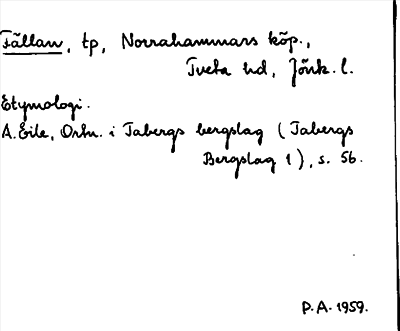 Fällan, tp, Norrahammars köp.,
Tveta hd, Jönk. l.
Etymologi.
A. Eile, Ortn. i Tabergs bergslag (Tabergs
Bergslag 1), s. 56.
P.A. 1959.